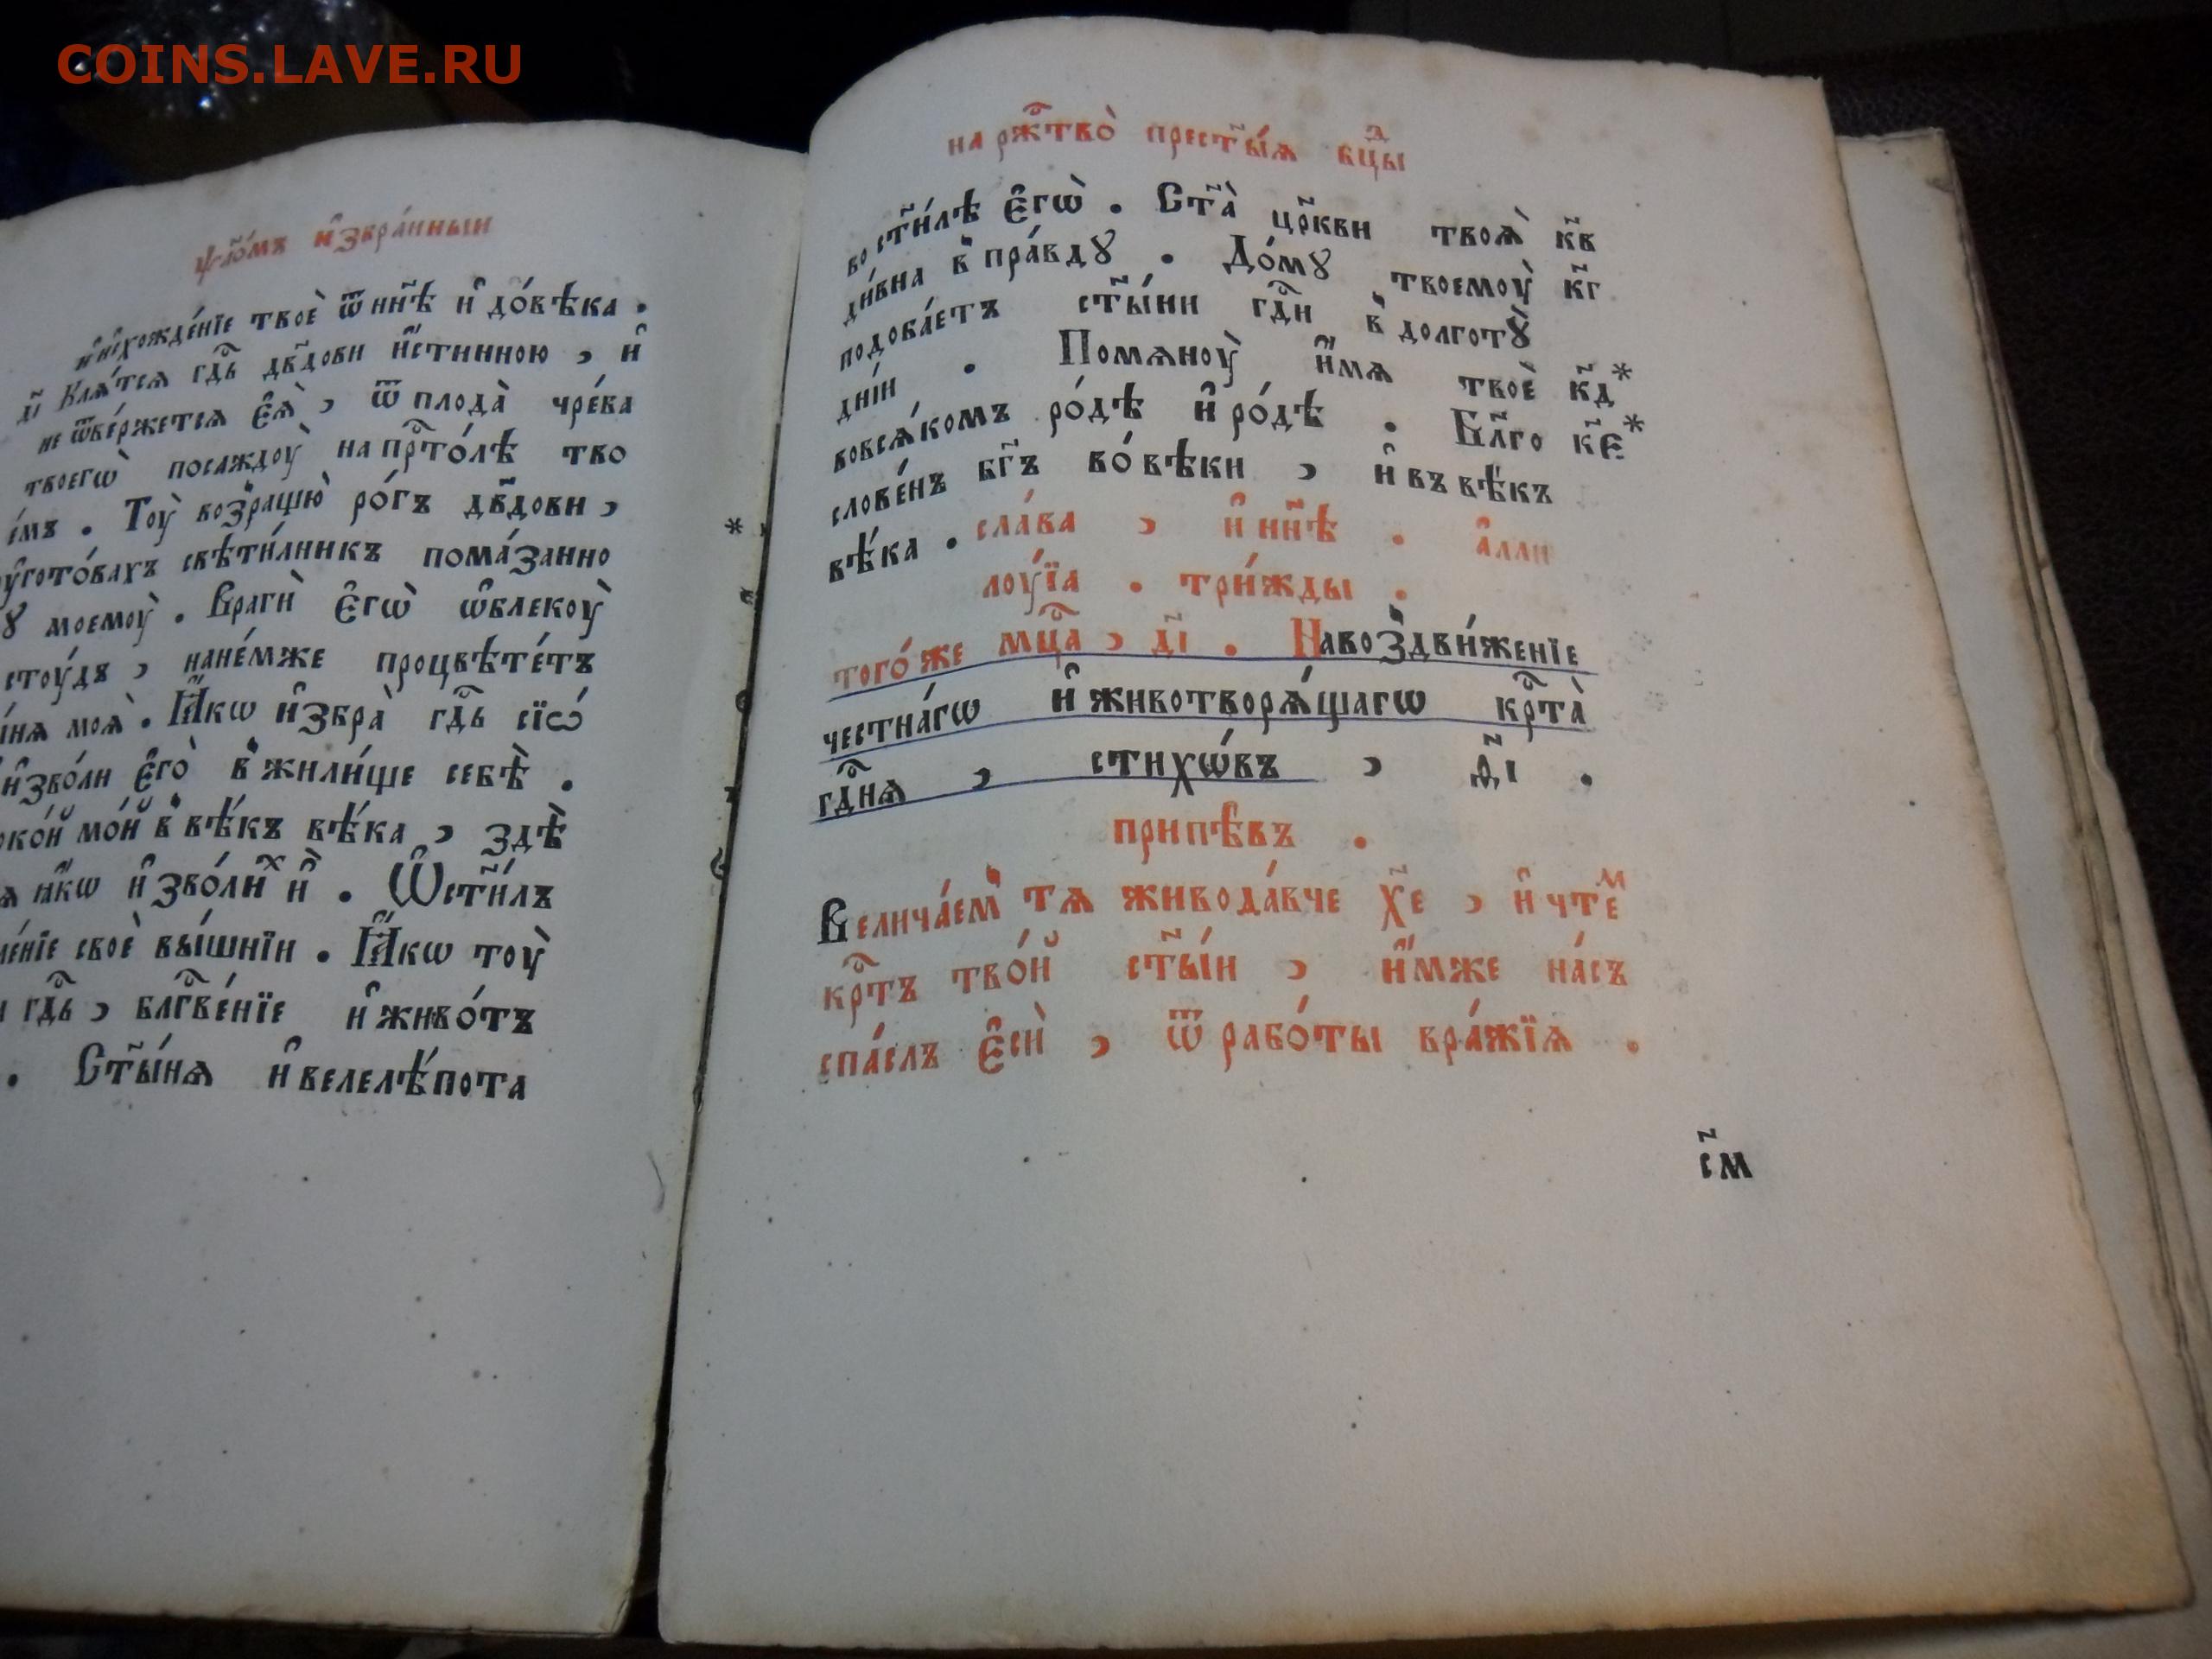 COINS.LAVE.RU
ѱло́мъ и҆збра́нныи
и҆и҆схожде́нїе твоѐ ѿ нн҃ѣ и҆ до́вѣка .
д҃і Кля́тся гд҇ь дв҃дови и҆́стинною , и҆
не ѿве́ржется є҆ѧ̀ , ѿ плода̀ чре́ва
твоегѡ̀ посаждоу̀ на пр҇то́лѣ тво
е́мъ . Тоу̀ возращю̀ ро́гъ дв҃дови ,
оу҆гото́вахъ свѣти́лникъ пома́занно
ꙋ моемоу̀ . Врагѝ є҆гѡ̀ ѡ҆блекоу̀
стоу́дъ , нане́мже процвѣте́тъ
ы́нѧ моѧ̀ . Ꙗ҆́кѡ и҆збра̀ гд҇ь сїѡ́
и҆зво́ли є҆го̀ в жили́ще себѣ̀ .
око́й мо́й в вѣ́къ вѣ́ка , здѣ̀
ѧ ꙗ҆́кѡ и҆зво́лих и҆̀ . Ѡ҆ст҃и́лъ
ле́нїе своѐ вы́шнїи . Ꙗ҆́кѡ тоу̀
и гд҇ь , блг҇ве́нїе и҆ живо́тъ
. Ст҃ы́нѧ и҆ велелѣ́пота
на рж҇тво̀ прест҃ы́ѧ бцⷣы
во ст҃и́лѣ є҆гѡ̀ . Ст҃а̀ цр҃кви твоѧ̀ к҃в
ди́вна в пра́вдꙋ . До́мꙋ твоемоу̀ к҃г
подоба́етъ ст҃ы́ни гд҇и в долготꙋ̀
дні́и . Помѧноу̀ и҆́мѧ твоѐ к҃д *
вовсѧ́комъ ро́дѣ и҆ ро́дѣ . Бл҃го к҃є *
слове́нъ бг҃ъ во́ вѣки , и҆ въ вѣ́къ
вѣ́ка . сла́ва , и҆ нн҃ѣ . а҆лли
лоу́їа . три́жды .
того́же мц҇а , д҃і . Навоздви́женїе
честна́гѡ и҆ животворѧ́щагѡ кр҇та̀
гд҇нѧ , стихѡ́въ , д҃і .
припѣ́въ .
Велича́ем тѧ живода́вче х҃е , и҆ чтеⷨ
кр҇тъ тво́й ст҃ы́и , и҆́мже на́съ
спа́слъ є҆сѝ , ѿ рабо́ты вра́жїѧ .
с҃м